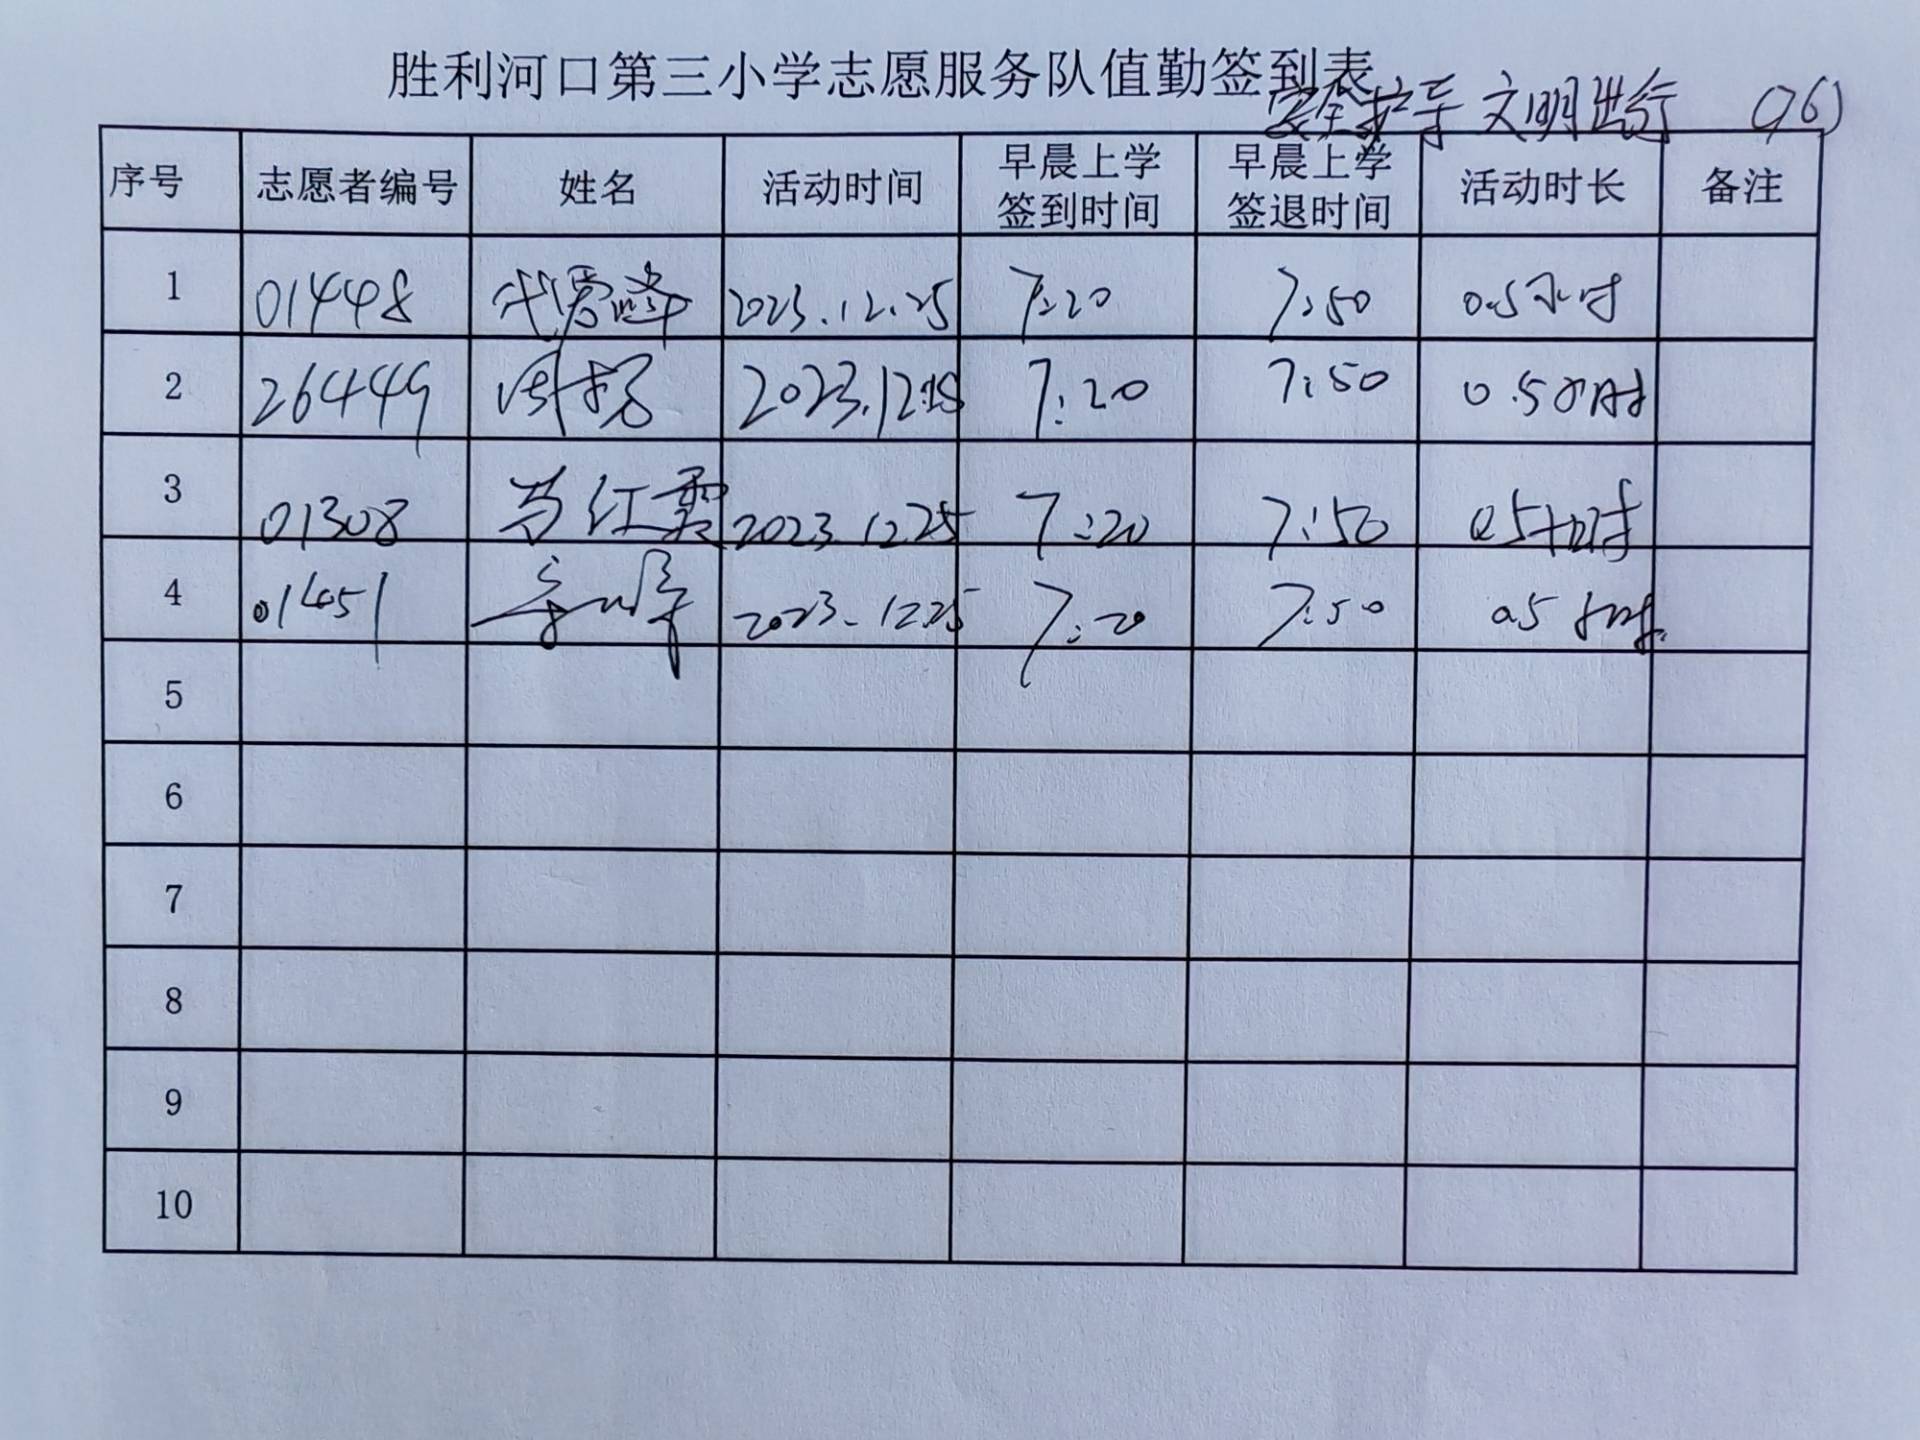 胜利河口第三小学志愿服务队值勤签到表
安全护导 文明出行 (76)
序号 志愿者编号 姓名 活动时间 早晨上学签到时间 早晨上学签退时间 活动时长 备注
1 01448 2023.12.25 7:20 7:50 0.5小时
2 26449 周扬 2023.12.25 7:20 7:50 0.5小时
3 01308 红霞 2023.12.25 7:20 7:50 0.5小时
4 01451 2023.12.25 7:20 7:50 0.5小时
5
6
7
8
9
10